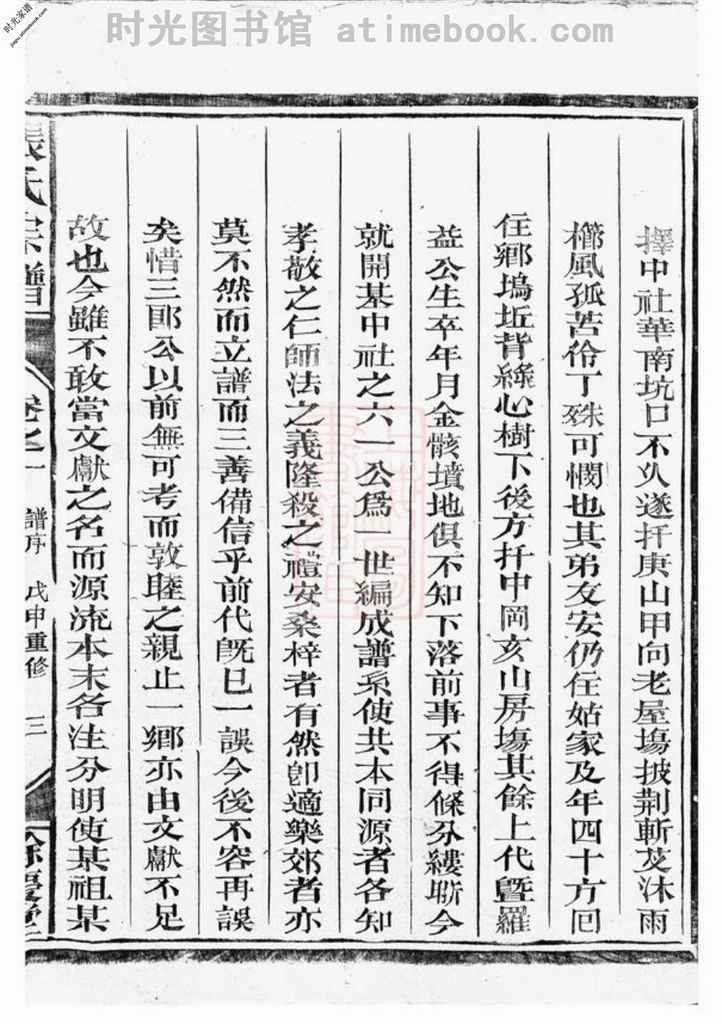 时光图书馆 atimebook.com
时光家谱
擇中社華南坑口不久遂扦庚山甲向老屋塲披荆斬芟沐雨
櫛風孤苦伶丁殊可憫也其弟文安仍住姑家及年四十方囘
住鄉塢坵背緣心樹下後方扦中岡亥山房塲其餘上代曁羅
益公生卒年月金骸墳地俱不知下落前事不得條分縷晰今
就開基中社之六一公爲一世編成譜系使共本同源者各知
孝敬之仁師法之義隆殺之禮安桑梓者有然卽適樂郊者亦
莫不然而立譜而三善備信乎前代旣已一誤今後不容再誤
矣惜三郎公以前無可考而敦睦之親止一鄉亦由文獻不足
故也今雖不敢當文獻之名而源流本末各注分明使某祖某
張氏宗譜 卷之一 譜序 戊申重修 三 餘慶堂